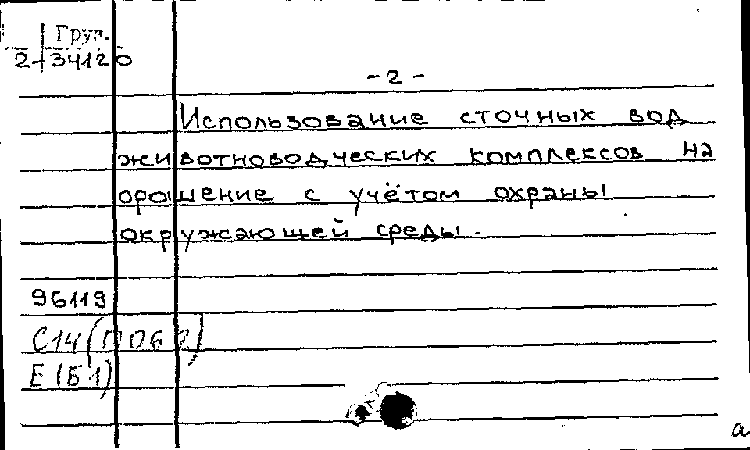 Груз.
2-34120
- 2 -
Использование сточных вод
животноводческих комплексов на
орошение с учётом охраны
окружающей среды.
96119
С14(П06 2)
Е(Б1)
а